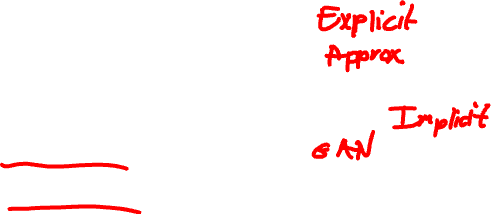 Explicit
Approx
Implicit
GAN